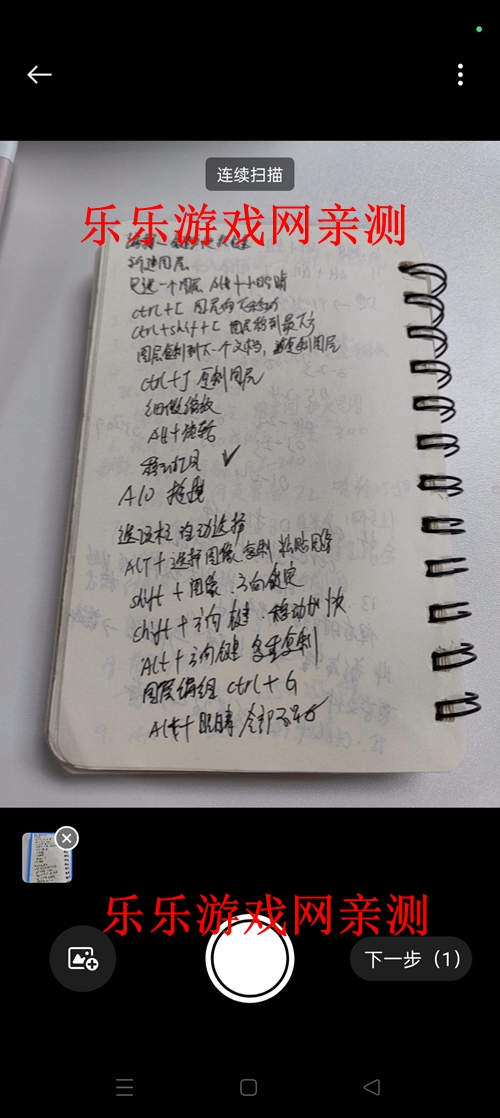 连续扫描
乐乐游戏网亲测
新建图层
只选一个图层 Alt+小眼睛
ctrl+[ 图层向下移动
ctrl+shift+[ 图层移到最下方
图层复制到下一个文档,
ctrl+J 复制图层
细微缩放
Alt+滚轮
移动工具 ✓
A10
选项栏 自动选择
ALT+选择图像 复制 粘贴图层
shift+图象 方向锁定
shift+方向键 移动加快
Alt+方向键 多重复制
图层编组 ctrl+G
Alt+眼睛 全部
乐乐游戏网亲测
下一步（1）